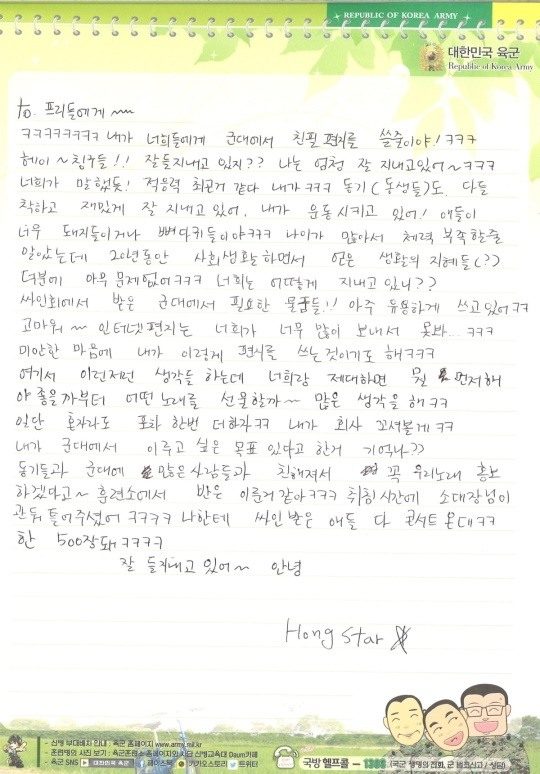 REPUBLIC OF KOREA ARMY
대한민국 육군
Republic of Korea Army
to. 프리들에게 ~~
ㅋㅋㅋㅋㅋㅋㅋㅋ 내가 너희들에게 군대에서 친필 편지를 쓸줄이야! ㅋㅋㅋ
헤이~ 친구들!! 잘들지내고 있지?? 나는 엄청 잘 지내고있어~ㅋㅋㅋ
너희가 말했듯! 적응력 최고인거 같다 내가 ㅋㅋㅋ 동기(동생들)도 다들
착하고 재밌게 잘 지내고 있어. 내가 운동시키고 있어! 애들이
너무 돼지들이거나 뼈다귀들이야ㅋㅋㅋ 나이가 많아서 체력 부족할줄
알았는데 20년동안 사회생활하면서 얻은 생활의 지혜들(?)
덕분에 아무 문제없어ㅋㅋㅋ 너희는 어떻게 지내고 있니??
싸인회에서 받은 군대에서 필요한 물품들!! 아주 유용하게 쓰고있어ㅋㅋ
고마워~ 인터넷편지는 너희가 너무 많이 보내서 못봐... ㅋㅋㅋ
미안한 마음에 내가 이렇게 편지를 쓰는것이기도 해ㅋㅋㅋ
여기서 이런저런 생각들 하는데 너희랑 제대하면 뭘 먼저해
야 좋을까부터 어떤노래를 선물할까~ 많은 생각을 해ㅋㅋ
일단 혼자라도 포차 한번 더하자ㅋㅋ 내가 회사 꼬셔볼게ㅋㅋ
내가 군대에서 이루고 싶은 목표 있다고 한거 기억나??
동기들과 군대에 많은사람들과 친해져서 꼭 우리노래 홍보
하겠다고~ 훈련소에서 반은 이룬거같아ㅋㅋㅋ 취침시간에 소대장님이
관둬 틀어주셨어ㅋㅋㅋㅋ 나한테 싸인받은 애들 다 콘서트 온대ㅋㅋ
한 500장돼ㅋㅋㅋㅋ
잘 들지내고 있어~ 안녕
Hong Star
- 신병 부대배치 안내 : 육군 홈페이지 www.army.mil.kr
- 훈련병의 사진 보기 : 육군훈련소 홈페이지와 사단 신병교육대 Daum카페
- 육군 SNS 대한민국 육군 페이스북 카카오스토리 트위터
국방 헬프콜 - 1303